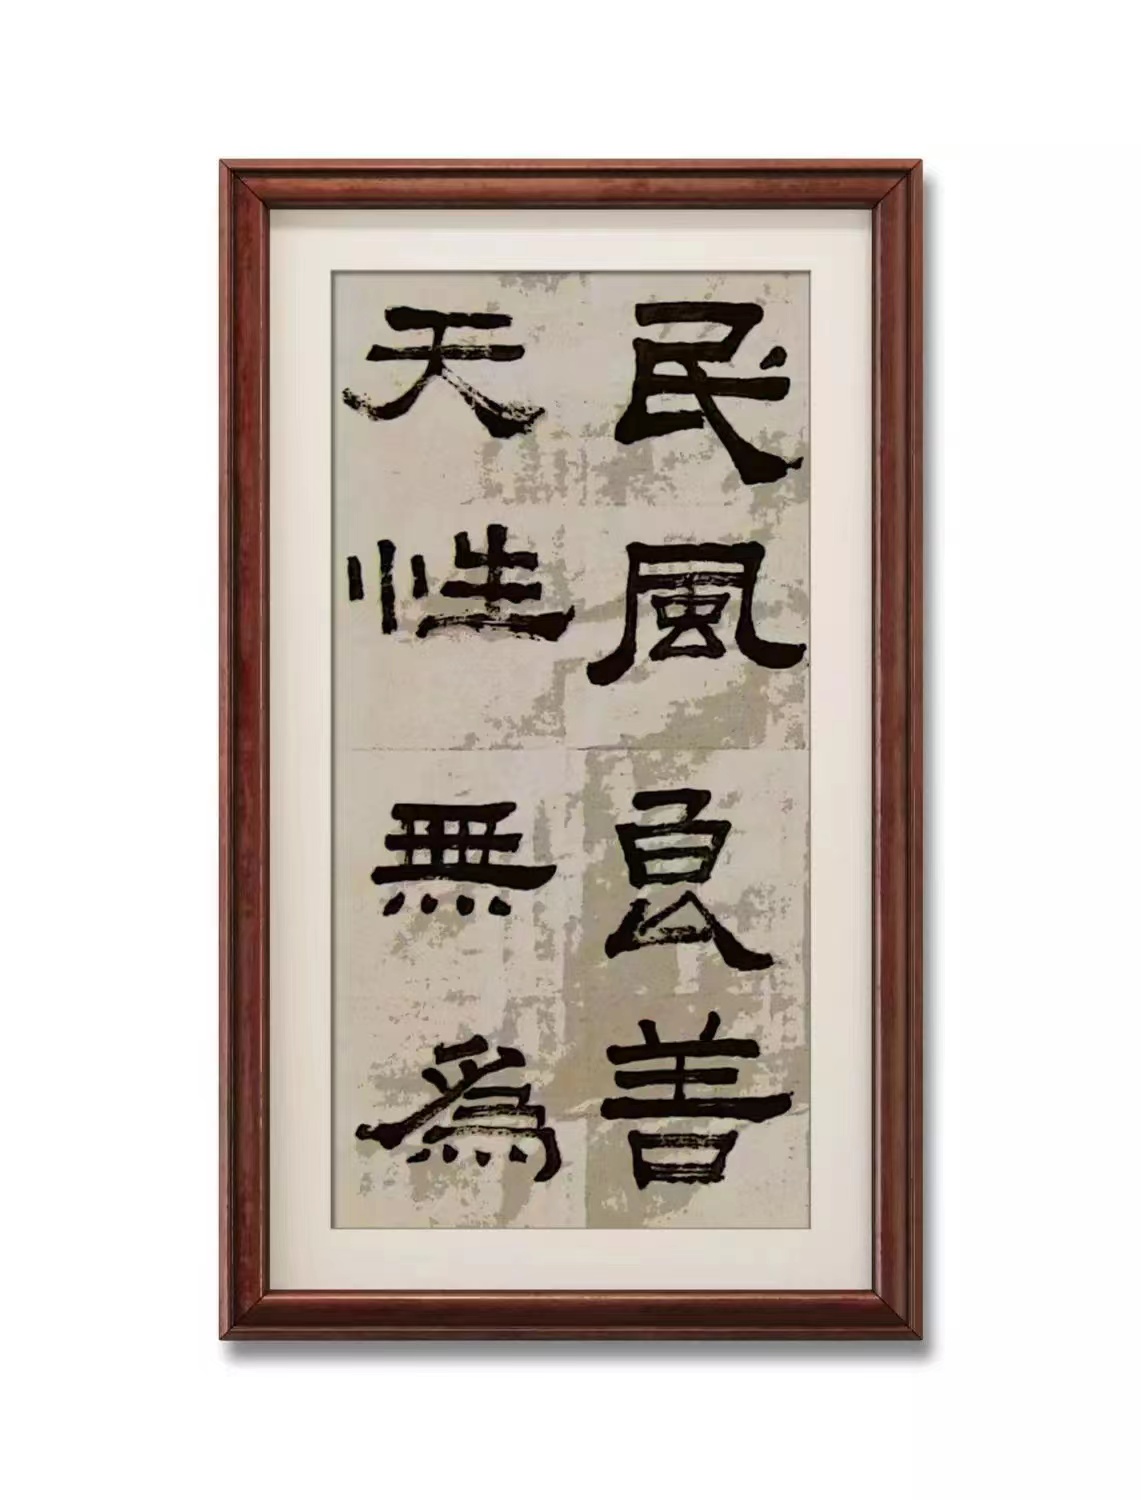 民風良善
天性無為